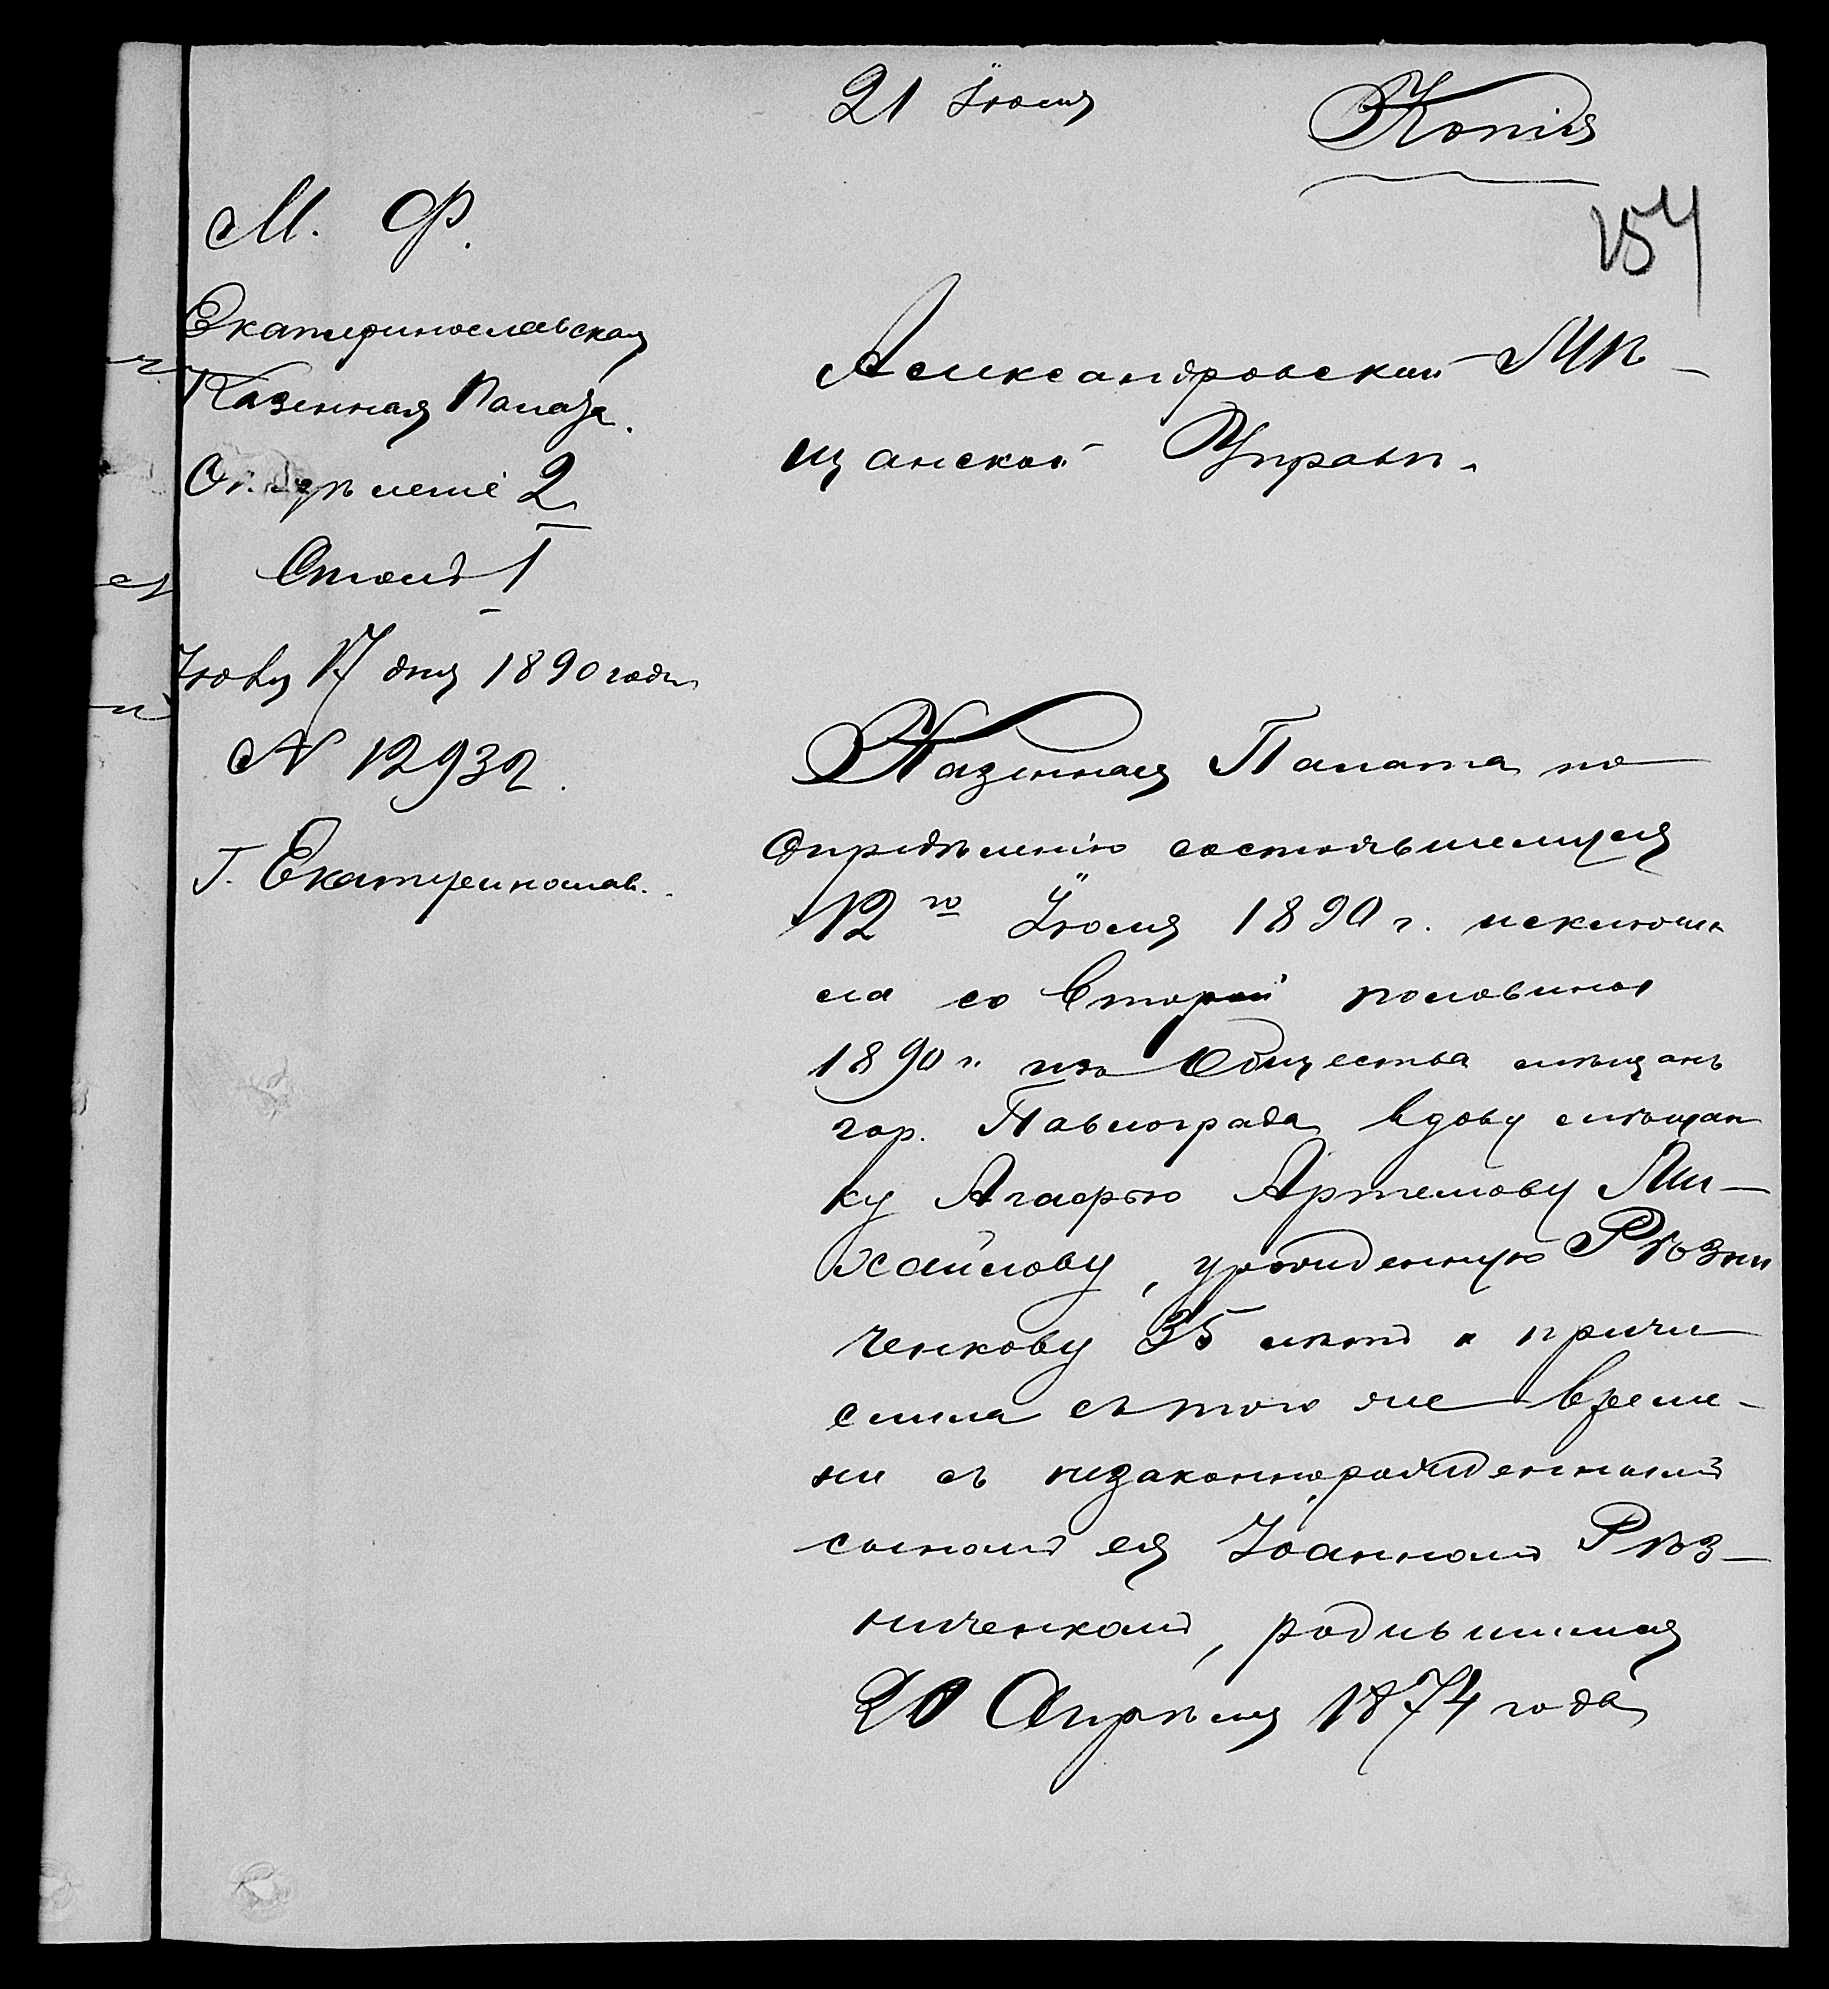 21 Июля
Копія
154
М. Ф.
Екатеринославская
Казенная Палата.
Отдѣленіе 2
Столъ 1
Июля 17 дня 1890 года
N 12932.
Г. Екатеринослав.
Александровской Мѣ-
щанской Управѣ.
Казенная Палата по
опредѣленію состоявшемуся
12го Июля 1890 г. исключи
ла со второй половины
1890 г. изъ Общества мѣщанъ
гор. Павлограда вдову мѣщан
ку Агафью Артемову Ми-
хайлову, урожденную Рѣзни
ченкову 35 лѣтъ и причи
слила съ того же време-
ни съ незаконнорожденнымъ
сыномъ ея Іоанномъ Рѣз-
ниченкомъ, родившимся
20 Апрѣля 1874 года